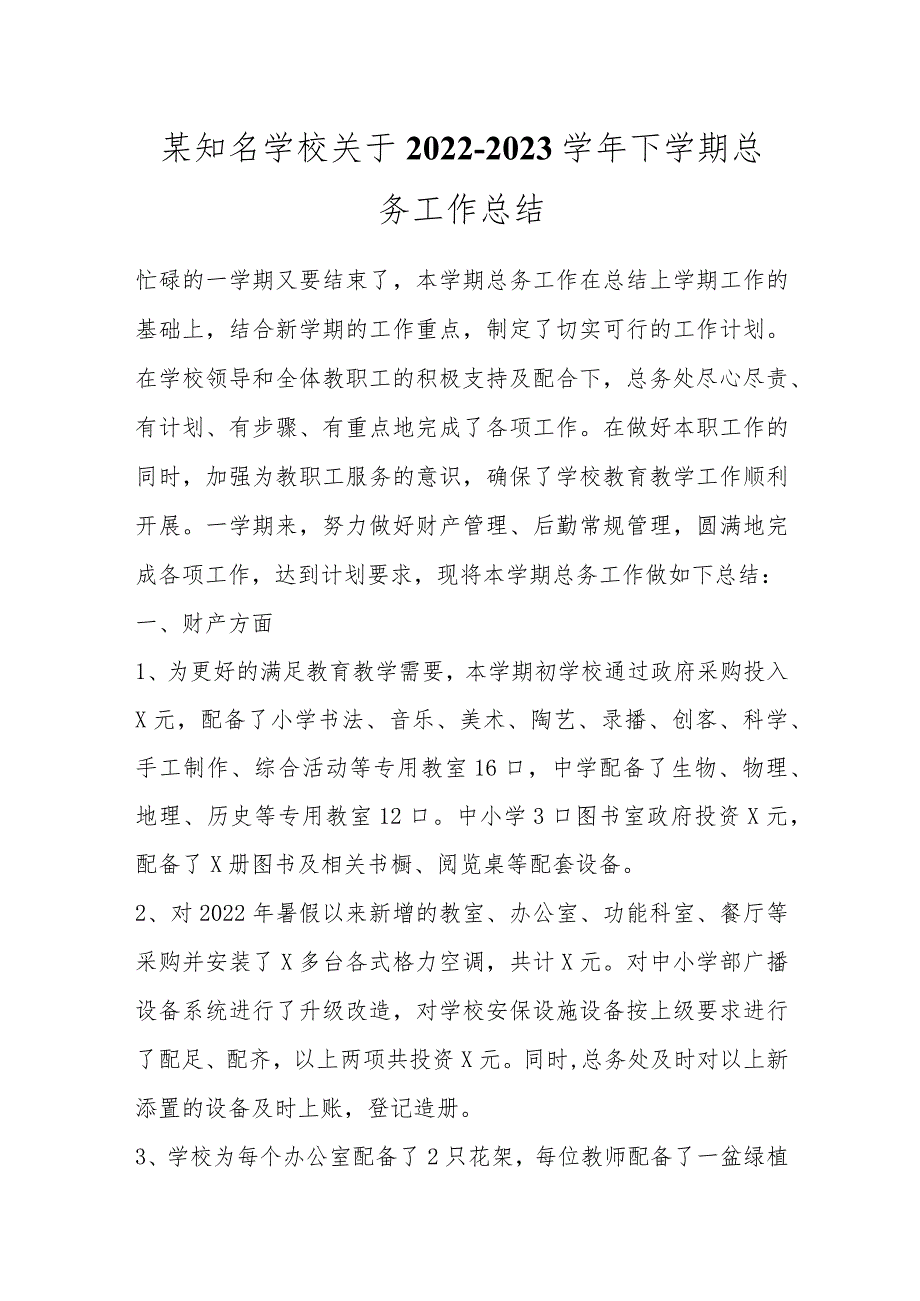 某知名学校关于2022-2023学年下学期总
务工作总结
忙碌的一学期又要结束了，本学期总务工作在总结上学期工作的
基础上，结合新学期的工作重点，制定了切实可行的工作计划。
在学校领导和全体教职工的积极支持及配合下，总务处尽心尽责、
有计划、有步骤、有重点地完成了各项工作。在做好本职工作的
同时，加强为教职工服务的意识，确保了学校教育教学工作顺利
开展。一学期来，努力做好财产管理、后勤常规管理，圆满地完
成各项工作，达到计划要求，现将本学期总务工作做如下总结：
一、财产方面
1、为更好的满足教育教学需要，本学期初学校通过政府采购投入
X元，配备了小学书法、音乐、美术、陶艺、录播、创客、科学、
手工制作、综合活动等专用教室16口，中学配备了生物、物理、
地理、历史等专用教室12口。中小学3口图书室政府投资X元，
配备了X册图书及相关书橱、阅览桌等配套设备。
2、对2022年暑假以来新增的教室、办公室、功能科室、餐厅等
采购并安装了X多台各式格力空调，共计X元。对中小学部广播
设备系统进行了升级改造，对学校安保设施设备按上级要求进行
了配足、配齐，以上两项共投资X元。同时,总务处及时对以上新
添置的设备及时上账，登记造册。
3、学校为每个办公室配备了2只花架，每位教师配备了一盆绿植